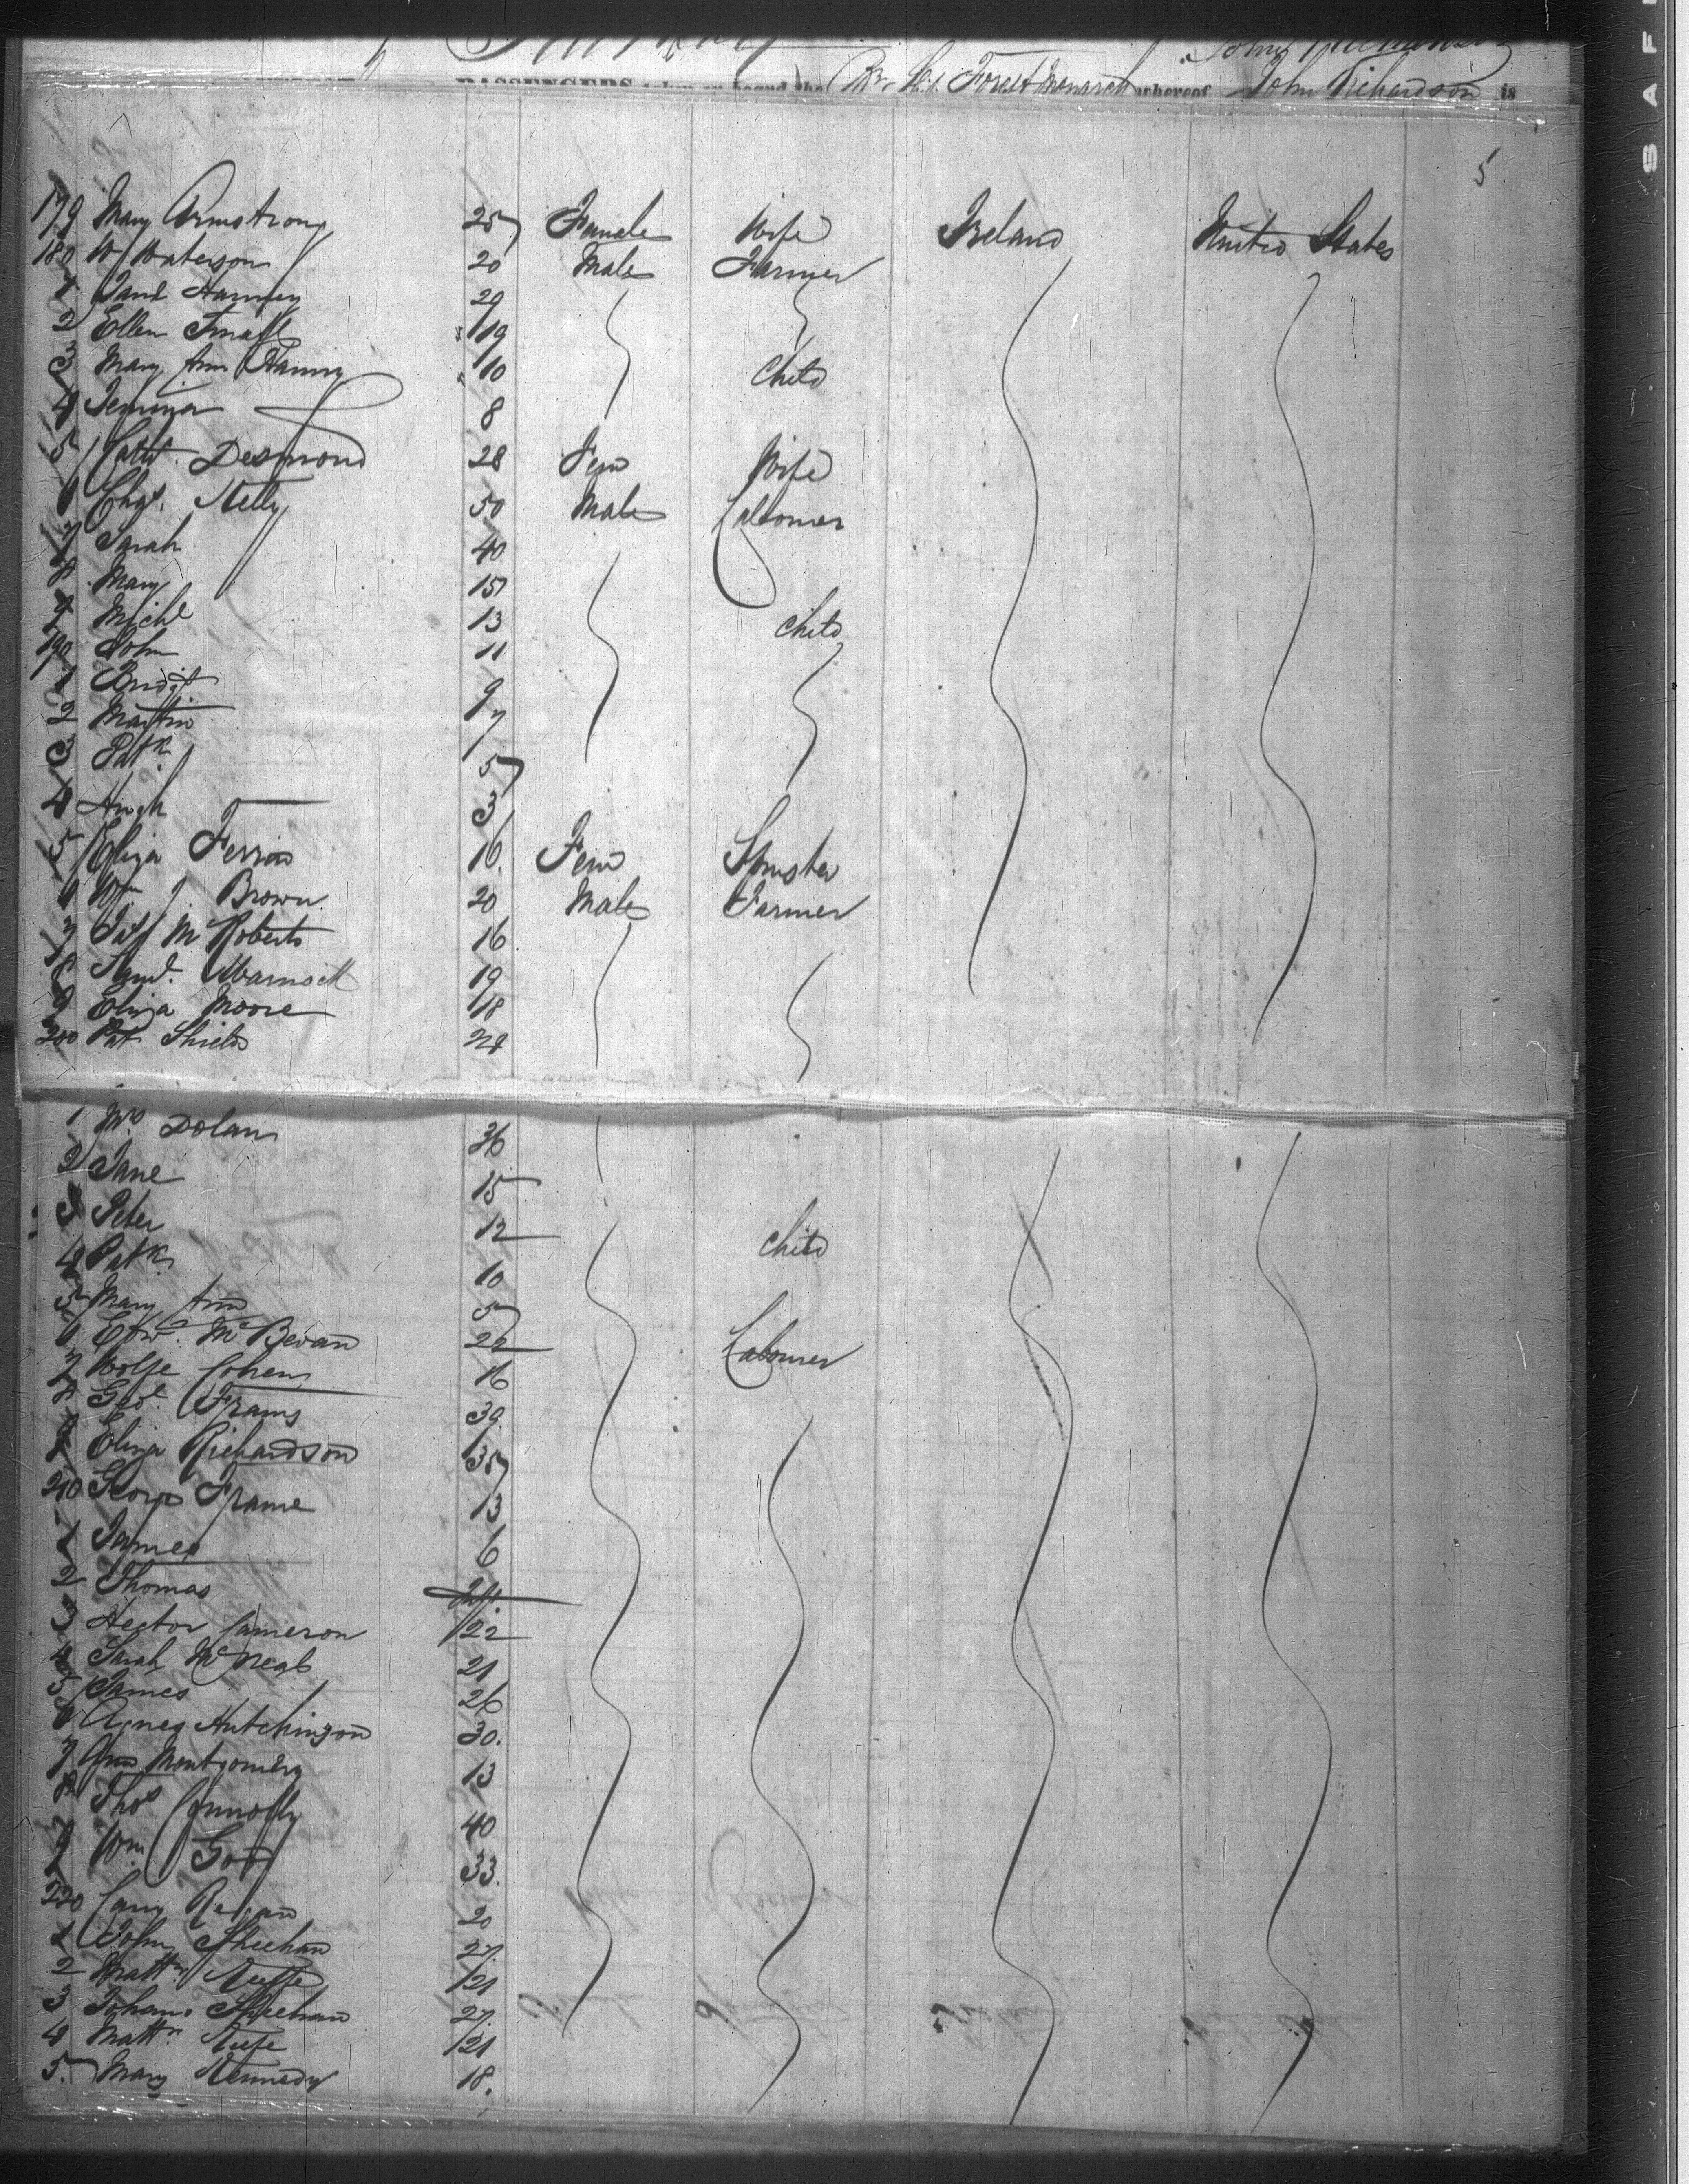 PASSENGERS taken on board the Br. Sh. Forest Monarch whereof John Richardson is
5
179 Mary Armstrong 25 Female Wife Ireland United States
180 W Waterson 20 Male Farmer
1 Jane 29
2 Ellen Small 19
3 Mary Ann 10 Child
4 Jemima 8
5 Cath. Desmond 28 Fem Wife
6 Chas. Kelly 50 Male Labourer
7 Sarah 40
8 Mary 15
9 Michl 13 Child
190 John 11
1 Bridgt 9
2 Martin 7
3 Patk 5
4 Hugh 3
5 Eliza 16 Fem Spinster
6 Wm J Brown 20 Male Farmer
7 M Roberts 16
8 Saml. 19
9 Eliza Moore 18
200 Pat Shields 28
1 Mrs Dolan 36
2 Jane 15
3 Peter 12 Child
4 Patk 10
5 Mary Ann 5
6 Edwd. McBevan 22 Labourer
7 Wolfe Cohen 16
8 Geo. Frams 39
9 Eliza Richardson 35
210 George Frame 13
1 James 6
2 Thomas Inft.
3 Hector Cameron 22
4 Sarah McNeal 21
5 James 26
6 Agnes Hutchinson 30.
7 Ann Montgomery 13
8 Thos Connolly 40
9 Wm 33.
220 Regan 20
1 John Sheehan 27
2 Mattw. Keefe 21
3 Johan. Sheehan 27.
4 Mattw. Keefe 21
5. Mary Kennedy 18.
SAF